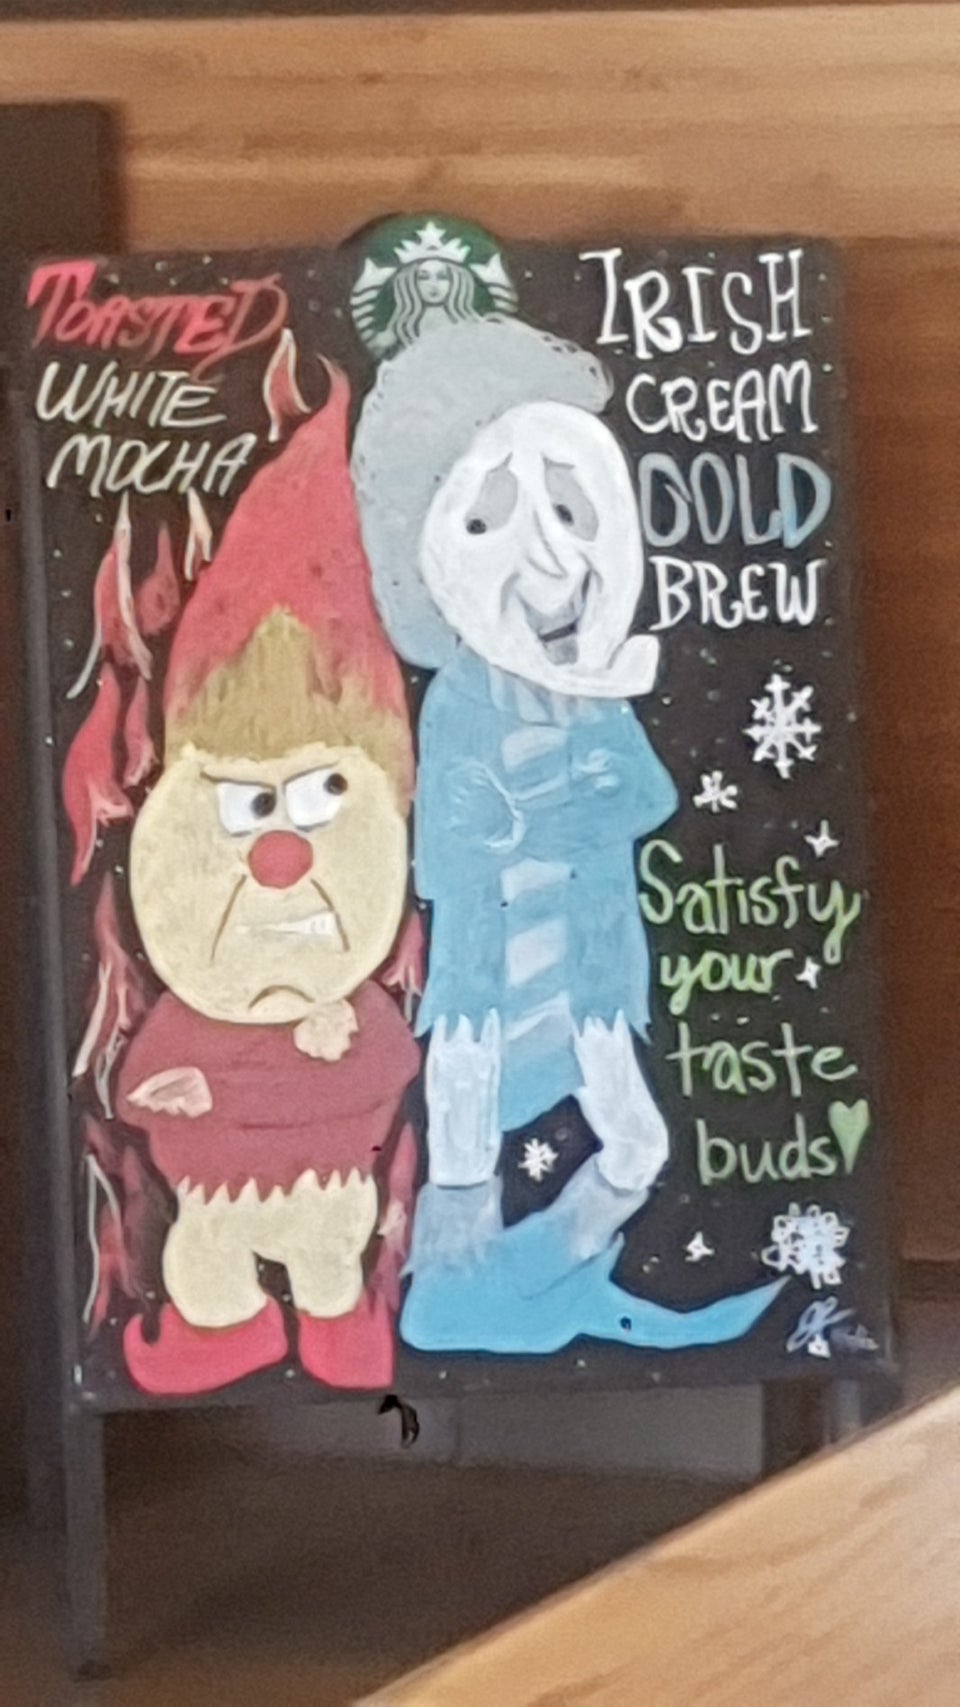 TOASTED
WHITE
MOCHA
IRISH
CREAM
COLD
BREW
Satisfy
your
taste
buds